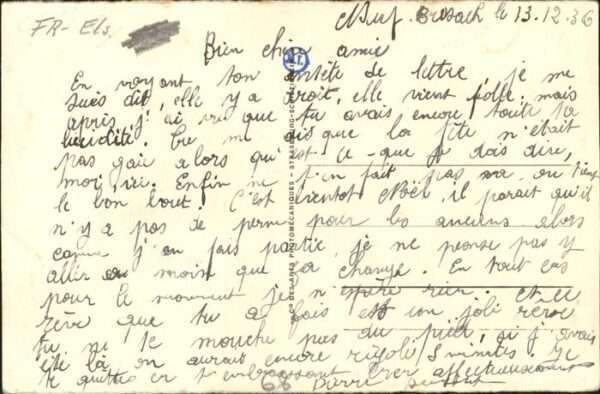 FR-Els.
Neuf-Brisach le 13.12.36
Bien chère amie
En voyant ton entête de lettre, je me
suis dit, elle y a droit, elle vient folle. mais
après j'ai vu que tu avais encore toute ta
lucidité. Tu me dis que la fête n'était
pas gaie alors qu'est-ce-que je dois dire,
moi ici. Enfin ne j'en fait pas va. on tient
le bon bout. C'est bientot Noël, il parait qu'il
n'y a pas de perm pour les anciens alors
comme j'en fais partie, je ne pense pas y
aller au moin que ça change. En tout cas
pour le moment je n'espère rien. et ce
rêve que tu a fais est un joli rêve
tu ne te mouche pas du pied, si j'avais
été là on aurait encore rigolé 5 minutes. Je
te quittes en t'embrassant bien affectueusement
Pierre
Cie DES ARTS PHOTOMÉCANIQUES - STRASBOURG-SCHILTIGHEIM